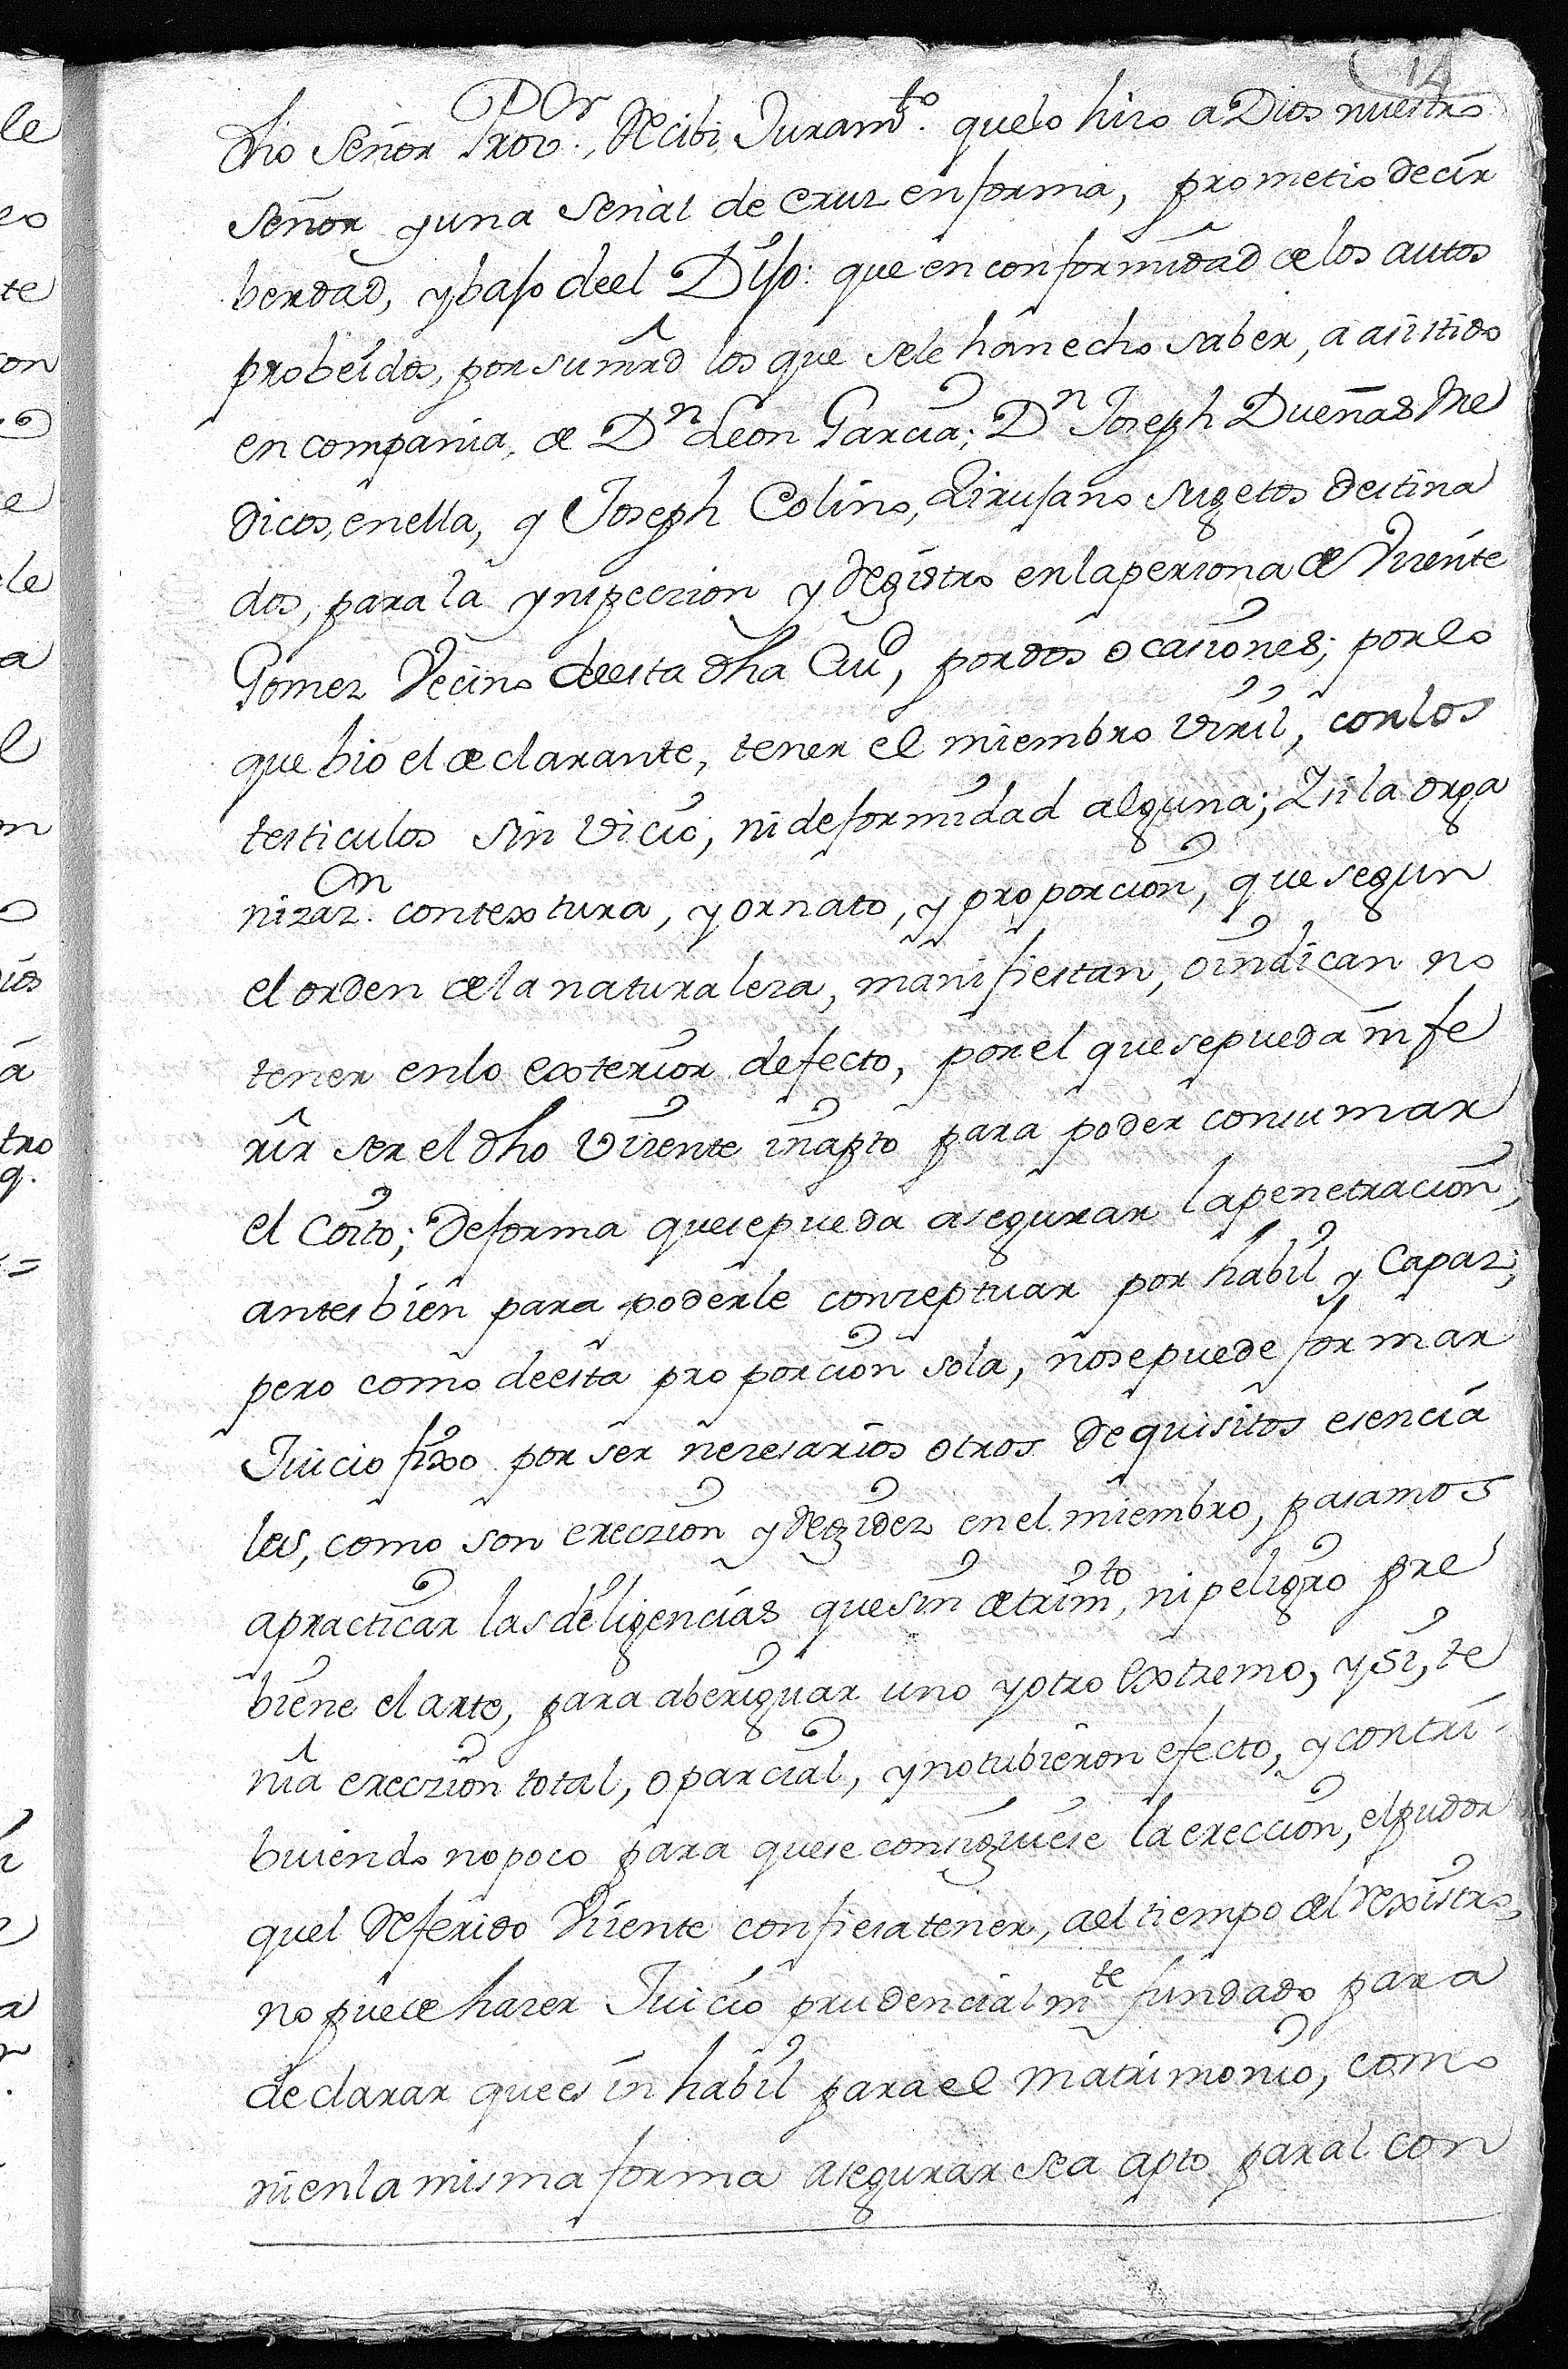 14
dho Señor Prov.or, Recibi Juramto. quelo hizo a Dios nuestro
Señor yuna Señal de Cruz enforma, prometio decir
berdad, ybaso deel Diso: que en conformidad delos autos
probeidos, por sumrd los que sele hanecho saber, a asistido
en compania, de Dn Leon Garcia; Dn Joseph Dueñas Me
dicos, enella, y Joseph Colino, Zirusano Sugetos destina
dos, para la ynspeczion y Registro enlapersona de Vizente
Gomez Vecino deesta dha Ciud, pordos ocasiones; porlo
que bio el declarante, tener el miembro Viril, conlos
testiculos sin vicio, nideformidad alguna; Zi la orga
nizazon. contextura, y ornato, y proporcion, que segun
el orden dela naturaleza, manifiestan, oindican no
tener enlo exterior defecto, porel quesepueda infe
rir ser el dho Vizente inapto para poder consumar
el Coito; Deforma quesepueda asegurar lapenetracion,
antesbien para poderle conzeptuar por habil y Capaz;
pero como deesta proporcion sola, nosepuede formar
Juicio fixo por ser nezesarios otros Requisitos esencia
les, como son ereczion y Regidez enel miembro, pasamos
apracticar lasdeligencias quesin detrimto, nipeligro pre
biene elarte, para aberiguar uno yotro extremo, y si, te
nia ereczion total, oparcial, ynotubieron efecto, y contri-
buiendo nopoco para quese consiguiese la ereccion, elpudor
quel Referido Vizente confiesatener, ael tiempo del Rexistro,
no puede hazer Juicio prudencialmte fundado para
declarar quees inhabil parael matrimonio, como
nienlamisma forma asegurar sea apto paral con